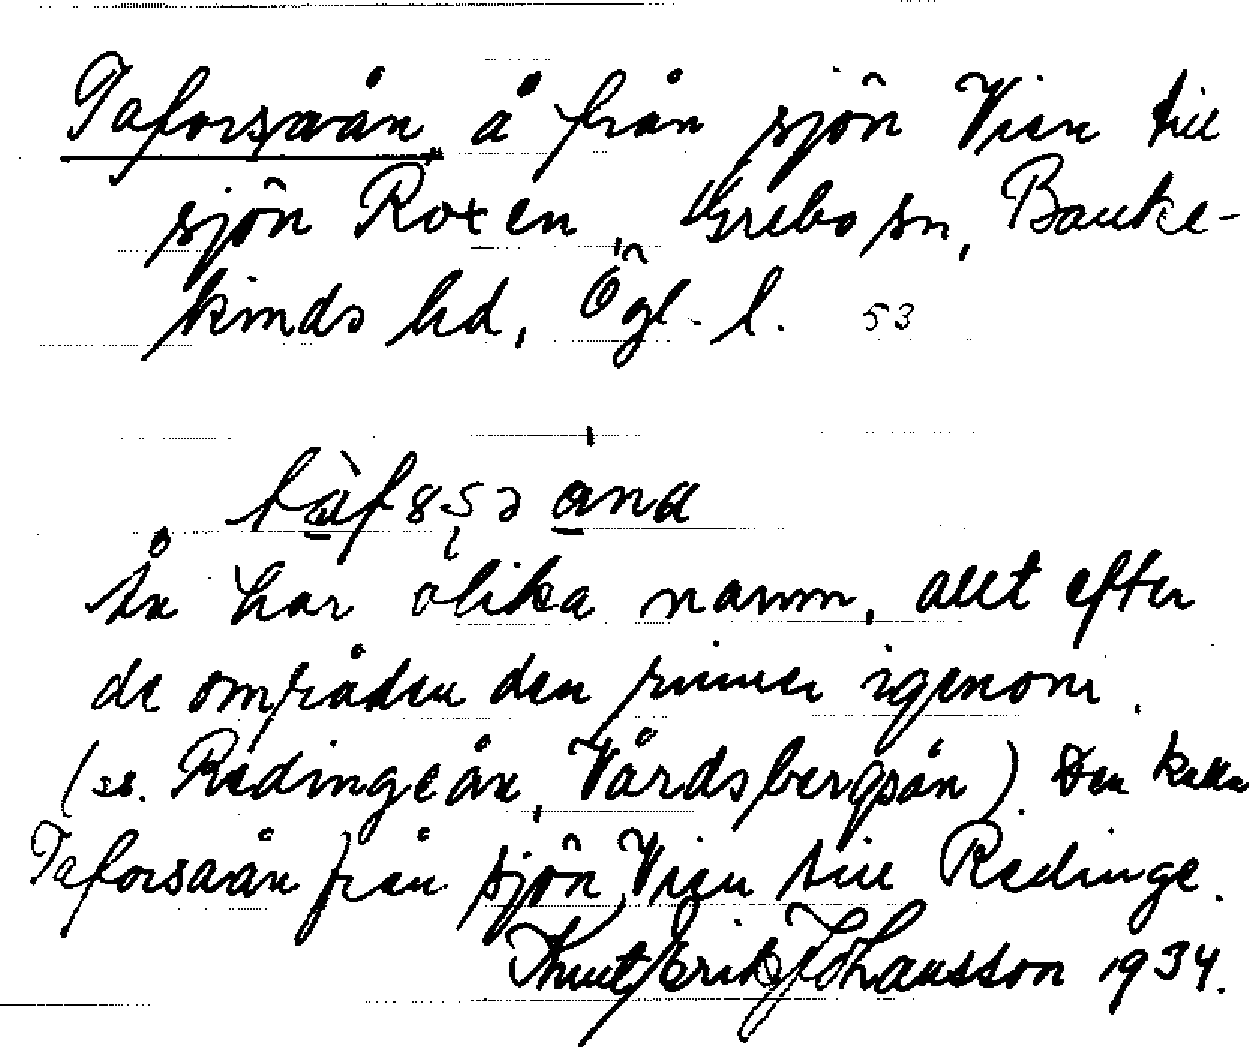 Taforsaån, å från sjön Vien till
sjön Roxen, Grebo sn, Banke-
kinds hd, Ögl. l. 53
Ån har olika namn, allt efter
de områden den rinner igenom.
(se. Redingeån, Vårdsbergsån). Den kallas
Taforsaån från sjön Vien till Redinge.
Knut Erik Johansson 1934.